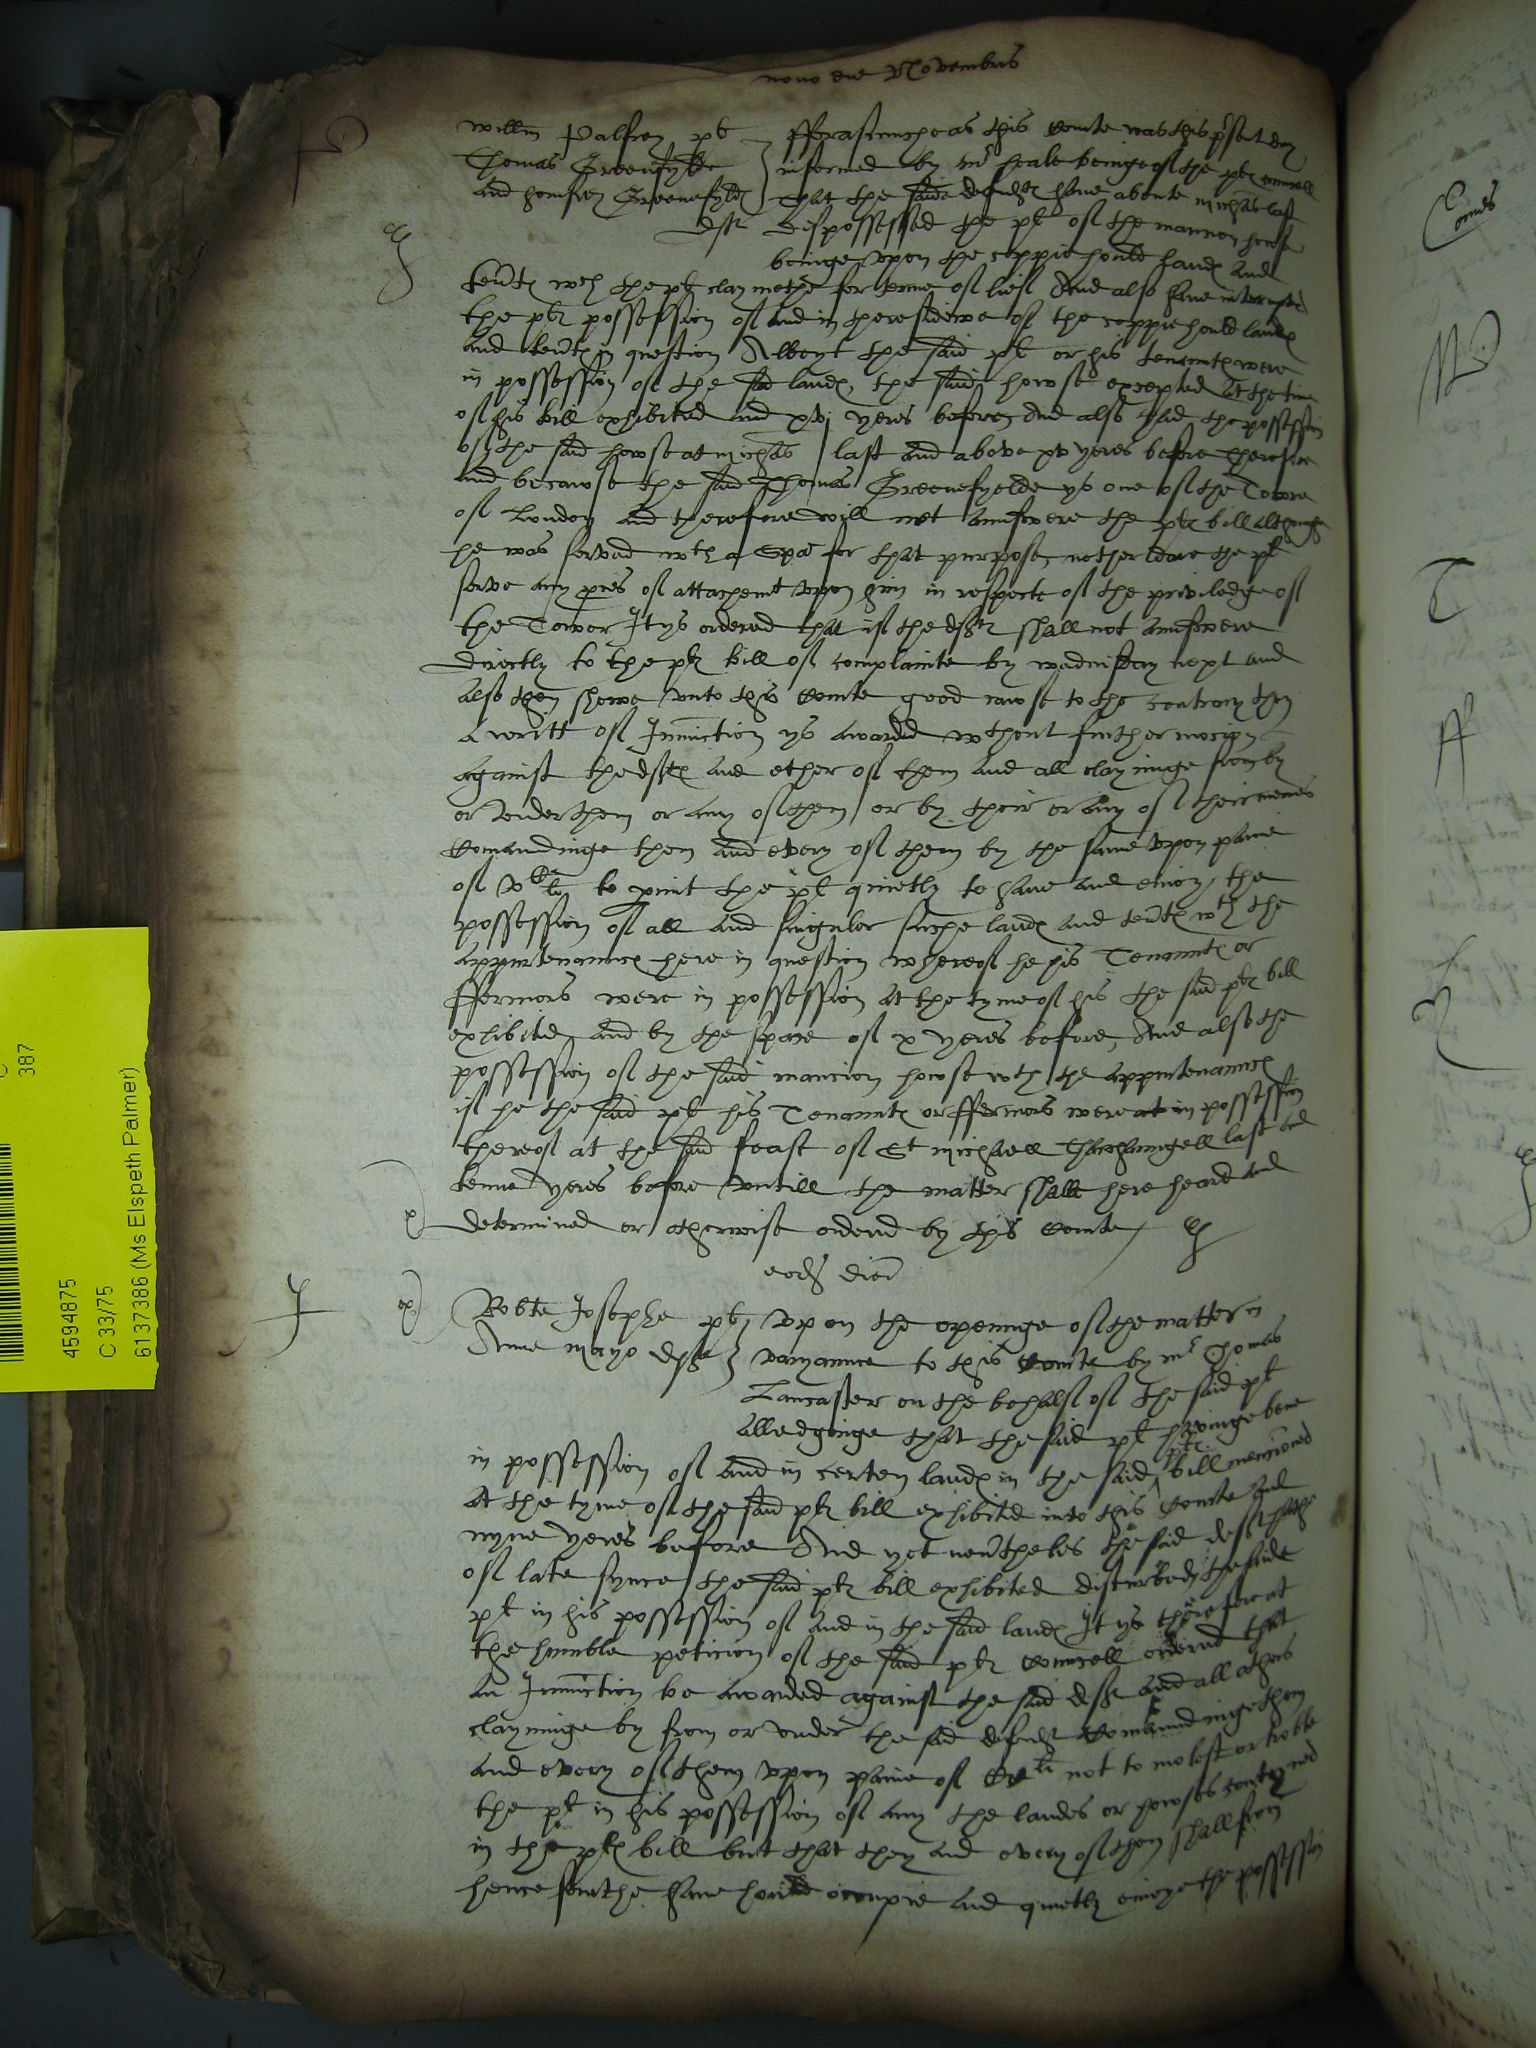 nono die Novembris
Willm Palfrey pt
Thomas Greenefylde
and homfrey Greenefyld
deftes
fforasmuche as this Courte was this psent day
informed by mr heale beinge of the ptes councell
that the saide defendtes have aboute michas last
dispossessed the pt of the mannor howse
beinge upon the coppiehould landes and
tentes wch the pt claymethe for terme of lief And also have interrupted
the ptes possession of and in the residewe of the coppiehould landes
and tentes in question Albeyt the said pt or his tenauntes were
in possession of the said landes, the said howse excepted at the time
of his bill exhibited and xvj yeres before, And also had the possession
of the said howse at michas last and above xv yeres before therefore
and becawse the said Thomas Greenefyelde ys one of the Towre
of London and therefore will not aunswere the ptes bill although
he was served wth a Spa for that purpose, nether dare the pt
serve any pces of attachemt upon him in respecte of the priviledge of
the Towor It ys ordered that if the deftes shall not aunswere
directly to the ptes bill of complainte by wednisday next and
also then shewe unto this Courte good cawse to the contrary then
a writt of Iniunction ys awarded wthout further mocion
against the deftes and ether of them and all clayminge from by
or under them or any of them or by their or any of their meanes
Comandinge them and every of them by the same upon paine
of vc li to pmit the pt quietly to have and enioy the
possession of all and singuler suche landes and tentes wth the
appurtenaunces here in question whereof he his Tenauntes or
ffermors were in possession at the tyme of his the said ptes bill
exhibited, and by the space of x yeres before, And also the
possession of the said mancion howse wth the appurtenaunces
if he the said pt his Tenauntes or ffermors were in possession
thereof at the said feast of St michaell Tharchaungell last and
tenne yeres before untill the matter shalbe here heard and
determined or otherwise ordered by this Courte
eodem die
Robte Josephe pt
Anne mayo deft
Upon the openinge of the matter in
varyaunce to this Courte by mr Thomas
Lancaster on the behalf of the said pt
alledginge that the said pt havinge bene
in possession of and in certen landes in the said ptes bill mencioned
at the tyme of the said ptes bill exhibited into this Courte and
nyne yeres before And yet nevtheles the said deft hathe
of late synce the said ptes bill exhibited disturbed the saide
pt in his possession of and in the said landes It ys therefore at
the humble peticion of the said ptes Councell ordered that
an Iniunction be awarded against the said deft and all others
clayminge by from or under the said defendt Comaundinge them
and every of them upon paine of li not to molest or troble
the pt in his possession of any the landes or howses conteyned
in the ptes bill but that they and every of them shall from
henceforthe have hould occupie and quietly enioye the possession
4594875
C 33/75
6137386 (Ms Elspeth Palmer)
387